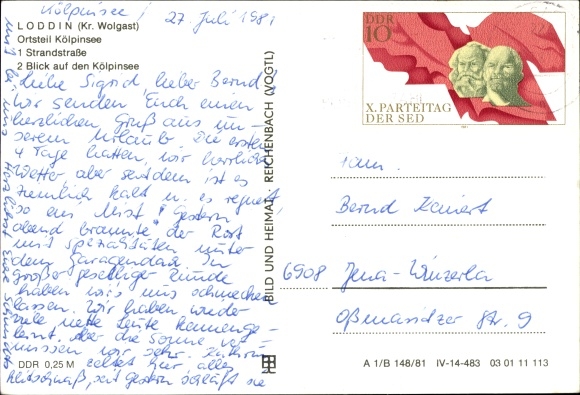 Kölpinsee, 27. Juli 1981
LODDIN (Kr. Wolgast)
Ortsteil Kölpinsee
1 Strandstraße
2 Blick auf den Kölpinsee
Liebe Sigrid, lieber Bernd!
Wir senden Euch einen
herzlichen Gruß aus un-
serem Urlaub. Die ersten
4 Tage hatten wir herrliches
Wetter, aber seitdem ist es
ziemlich kalt u. es regnet,
so ein Mist! Gestern
abend brannte der Rost
mit Spezialitäten unter
dem Garagendach. In
großer geselliger Runde
haben wir's uns schmecken
lassen. Wir haben wieder
viele nette Leute kennenge-
lernt. Aber die Sonne ver-
missen wir sehr.
zeltet hier, alles
klitschnaß, seit gestern schläft sie
mit bei uns. Herzlichst Eure
DDR 0,25 M
BILD UND HEIMAT REICHENBACH (VOGTL)
DDR
10
X. PARTEITAG
DER SED
1981
Fam.
Bernd
6908 Jena-Winzerla
Oßmaritzer Str. 9
A 1/B 148/81 IV-14-483 03 01 11 113